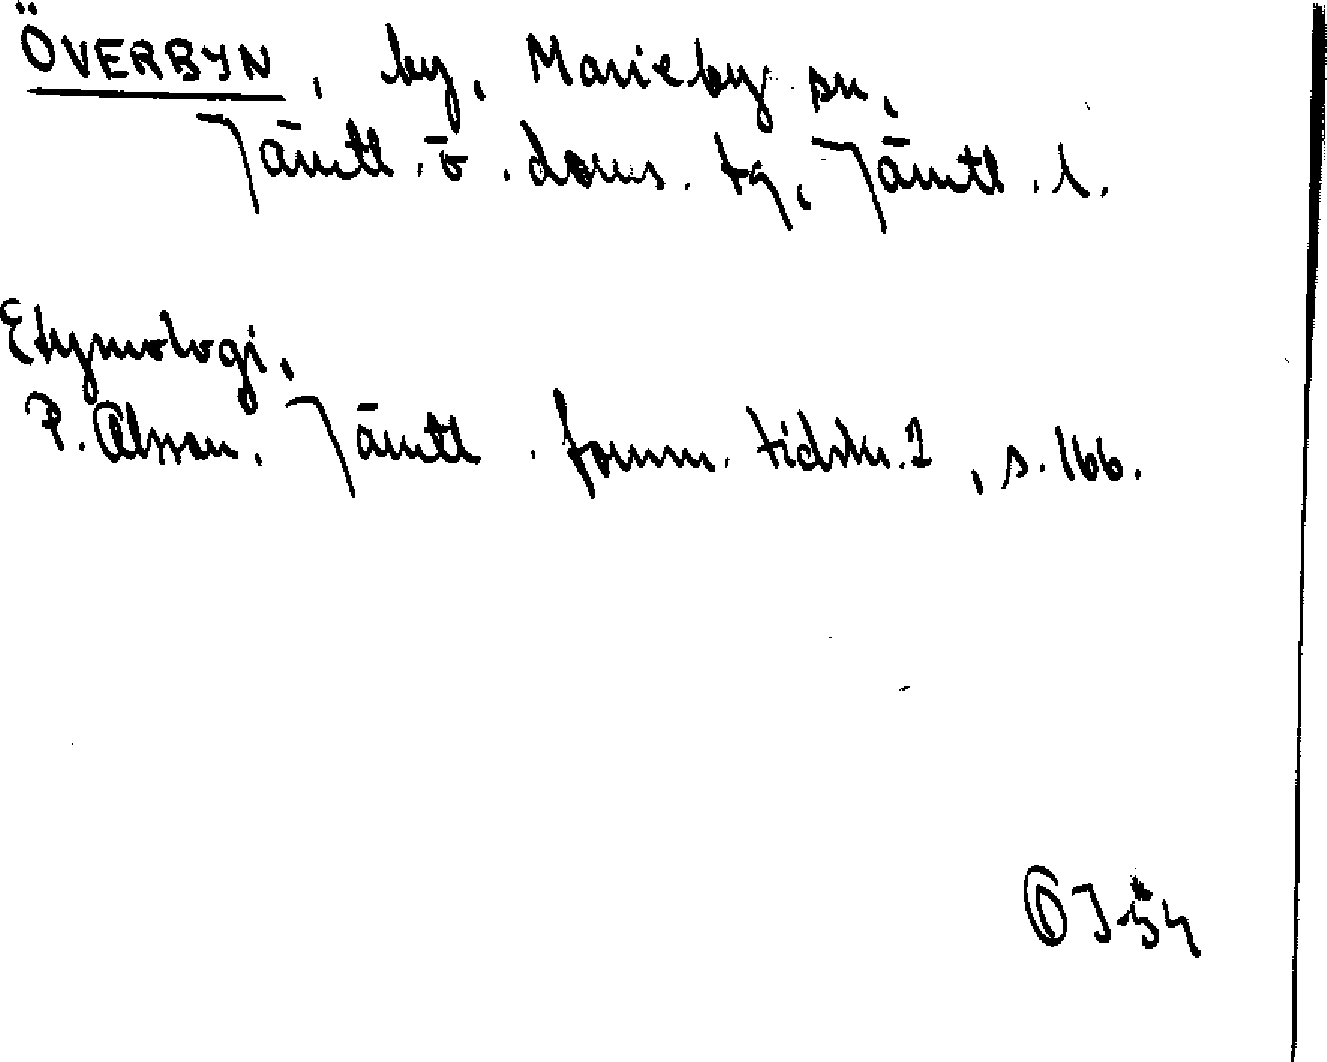 ÖVERBYN, by, Marieby sn,
Jämtl. ö. doms. tg, Jämtl. l.
Etymologi.
P. Olsson. Jämtl. fornm. tidskr. 1, s. 166.